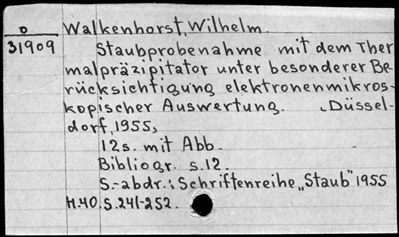 o Walkenhorst, Wilhelm.
31909 Staubprobenahme mit dem Ther
malpräzipitator unter besonderer Be-
rücksichtigung elektronenmikros-
kopischer Auswertung. Düssel-
dorf, 1955,
12s. mit Abb.
Bibliogr. s.12.
S.-abdr.: Schriftenreihe „Staub" 1955
H.40 S.241-252.